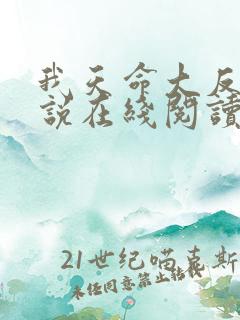 我天命大反
說在綫閱讀
21世纪喵喜斯
未经同意禁止转载